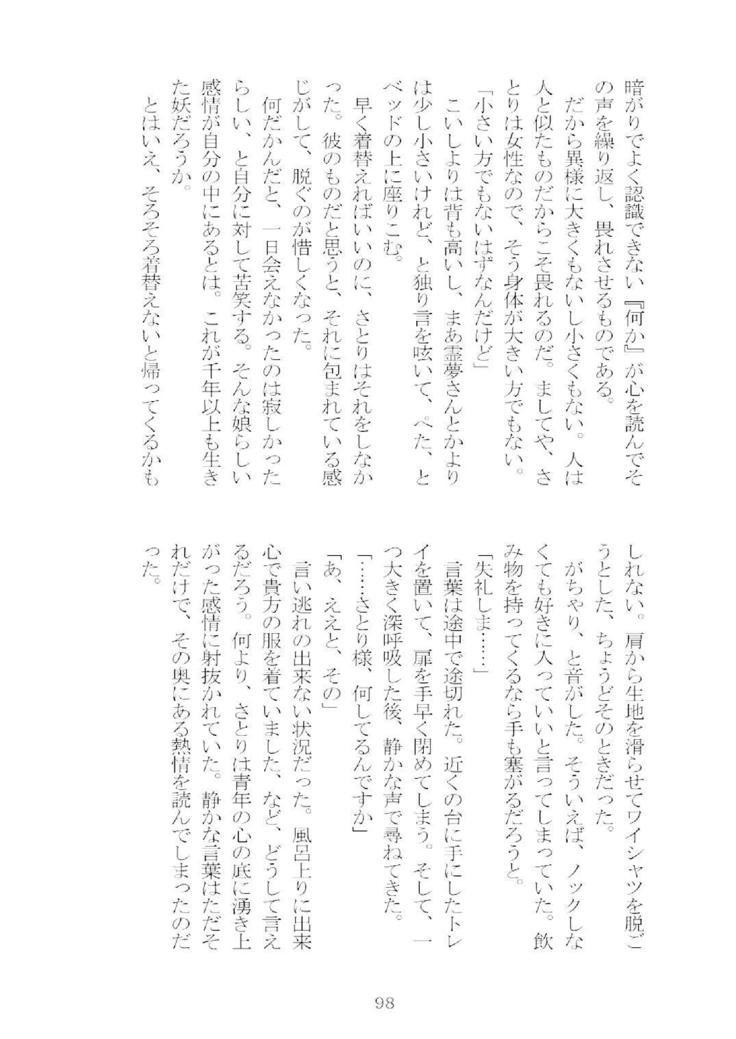 暗がりでよく認識できない『何か』が心を読んでそ
の声を繰り返し、畏れさせるものである。
　だから異様に大きくもないし小さくもない。人は
人と似たものだからこそ畏れるのだ。ましてや、さ
とりは女性なので、そう身体が大きい方でもない。
「小さい方でもないはずなんだけど」
　こいしよりは背も高いし、まあ霊夢さんとかより
は少し小さいけれど、と独り言を呟いて、ぺた、と
ベッドの上に座りこむ。
　早く着替えればいいのに、さとりはそれをしなか
った。彼のものだと思うと、それに包まれている感
じがして、脱ぐのが惜しくなった。
　何だかんだと、一日会えなかったのは寂しかった
らしい、と自分に対して苦笑する。そんな娘らしい
感情が自分の中にあるとは。これが千年以上も生き
た妖だろうか。
　とはいえ、そろそろ着替えないと帰ってくるかも
しれない。肩から生地を滑らせてワイシャツを脱ご
うとした、ちょうどそのときだった。
　がちゃり、と音がした。そういえば、ノックしな
くても好きに入っていいと言ってしまっていた。飲
み物を持ってくるなら手も塞がるだろうと。
「失礼しま……」
　言葉は途中で途切れた。近くの台に手にしたトレ
イを置いて、扉を手早く閉めてしまう。そして、一
つ大きく深呼吸した後、静かな声で尋ねてきた。
「……さとり様、何してるんですか」
「あ、ええと、その」
　言い逃れの出来ない状況だった。風呂上りに出来
心で貴方の服を着ていました、など、どうして言え
るだろう。何より、さとりは青年の心の底に湧き上
がった感情に射抜かれていた。静かな言葉はただそ
れだけで、その奥にある熱情を読んでしまったのだ
った。
98